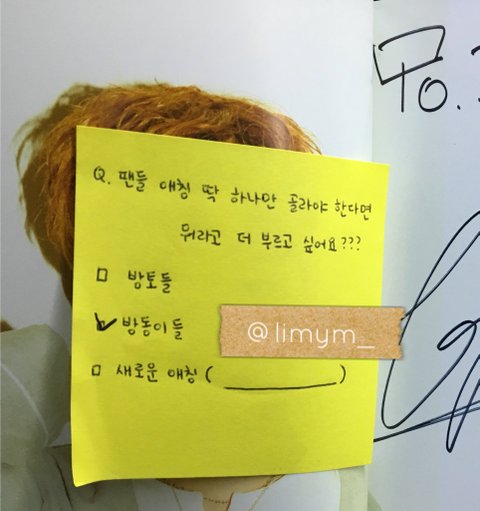 To.
Q. 팬들 애칭 딱 하나만 골라야 한다면
뭐라고 더 부르고 싶어요???
□ 방토들
☑ 방동이들
□ 새로운 애칭 (__________)
@limym_